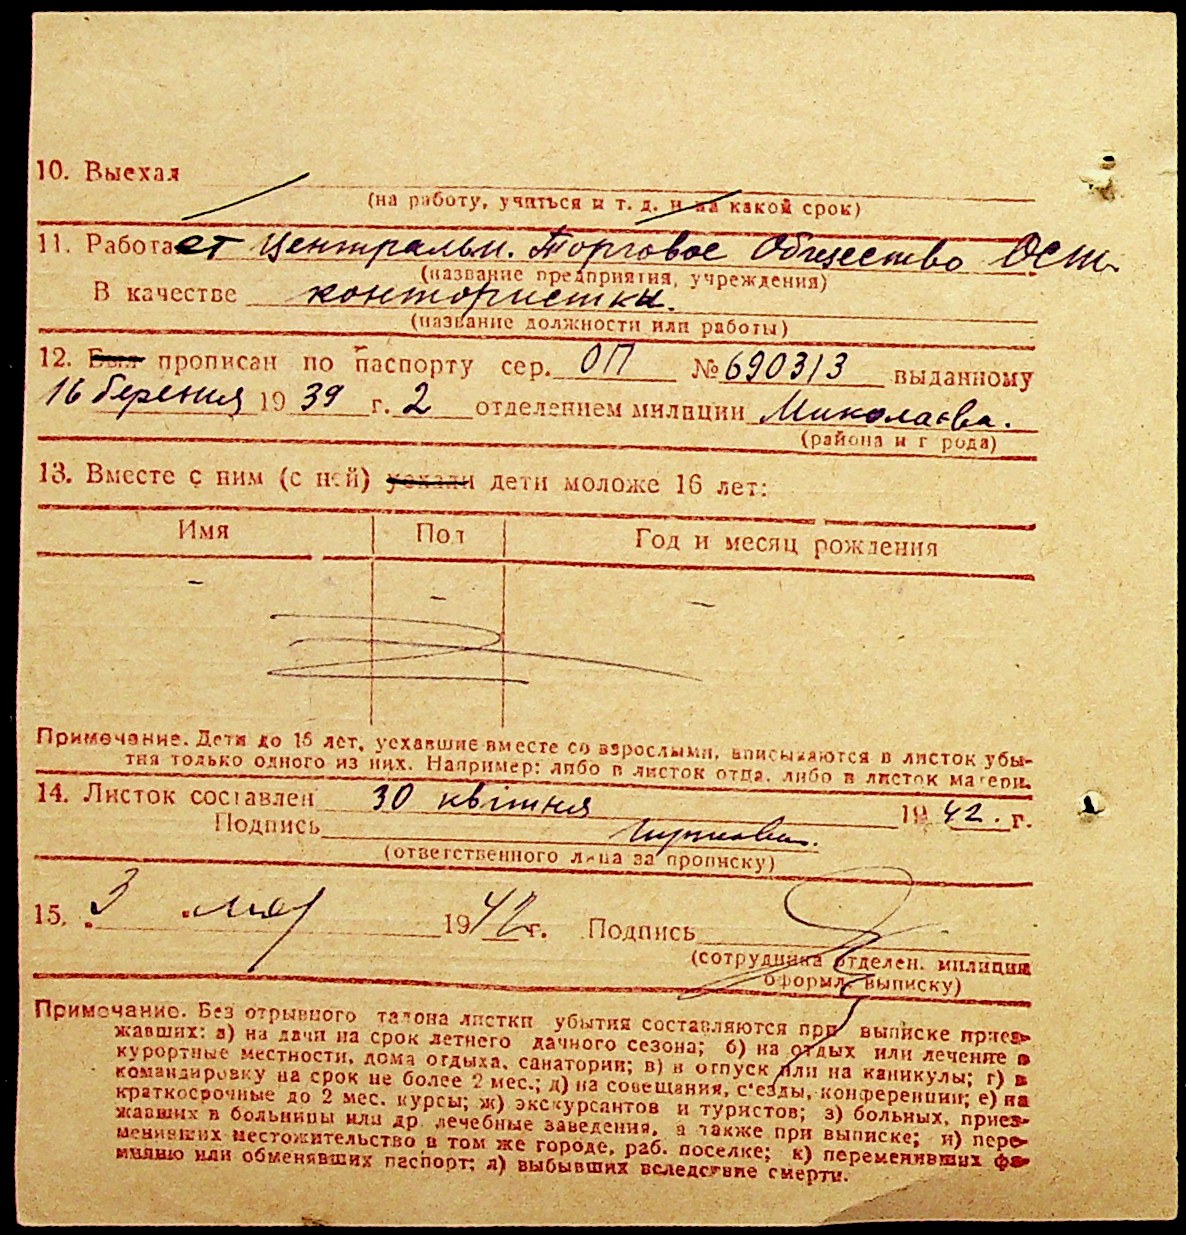 10. Выехал
(на работу, учиться и т. д. и на какой срок)
11. Работает Центральн. Торговое Общество Ост.
(название предприятия, учреждения)
В качестве контористки.
(название должности или работы)
12. Был прописан по паспорту сер. ОП № 690313 выданному
16 березня 1939 г. 2 отделением милиции Миколаєва.
(района и г рода)
13. Вместе с ним (с ней) уехали дети моложе 16 лет:
Имя Пол Год и месяц рождения
- - -
Примечание. Дети до 16 лет, уехавшие вместе со взрослыми, вписываются в листок убы-
тия только одного из них. Например: либо в листок отца, либо в листок матери.
14. Листок составлен 30 квітня 1942. г.
Подпись
(ответственного лица за прописку)
15. 3 мая 1942 г. Подпись
(сотрудника отделен. милиции
оформл. выписку)
Примечание. Без отрывного талона листки убытия составляются при выписке приез-
жавших: а) на дачи на срок летнего дачного сезона; б) на отдых или лечение в
курортные местности, дома отдыха, санатории; в) в отпуск или на каникулы; г) в
командировку на срок не более 2 мес.; д) на совещания, с'езды, конференции; е) на
краткосрочные до 2 мес. курсы; ж) экскурсантов и туристов; з) больных, приез-
жавших в больницы или др. лечебные заведения, а также при выписке; и) пере-
менивших местожительство в том же городе, раб. поселке; к) переменивших фа-
милию или обменявших паспорт; л) выбывших вследствие смерти.